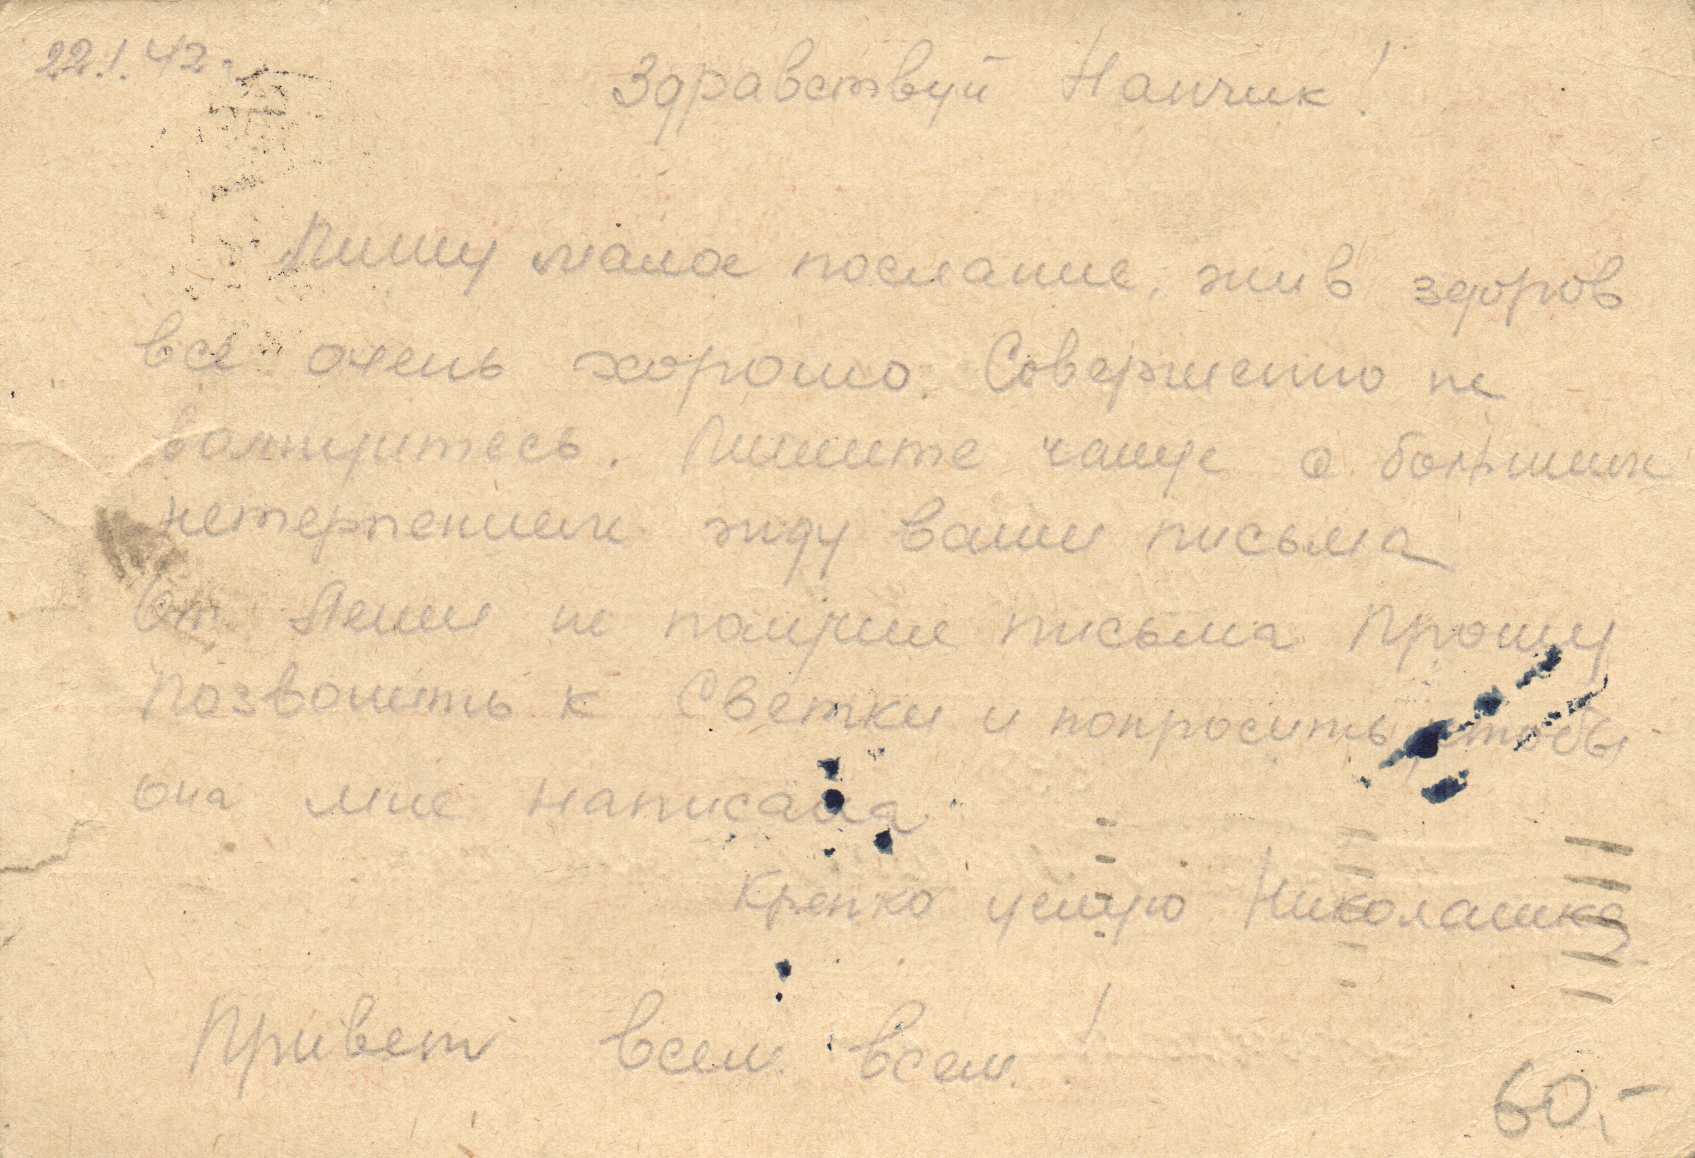 22.I.42г.
Здравствуй Нанчик!
Пишу мало послание, жив здоров
все очень хорошо. Совершенно не
волнуйтесь. Пишите чаще с большим
нетерпением жду ваши письма
От Лёни не получил письма Прошу
позвонить к Светки и попросить чтобы
она мне написала
Крепко целую Николашка
Привет всем всем!
60,-